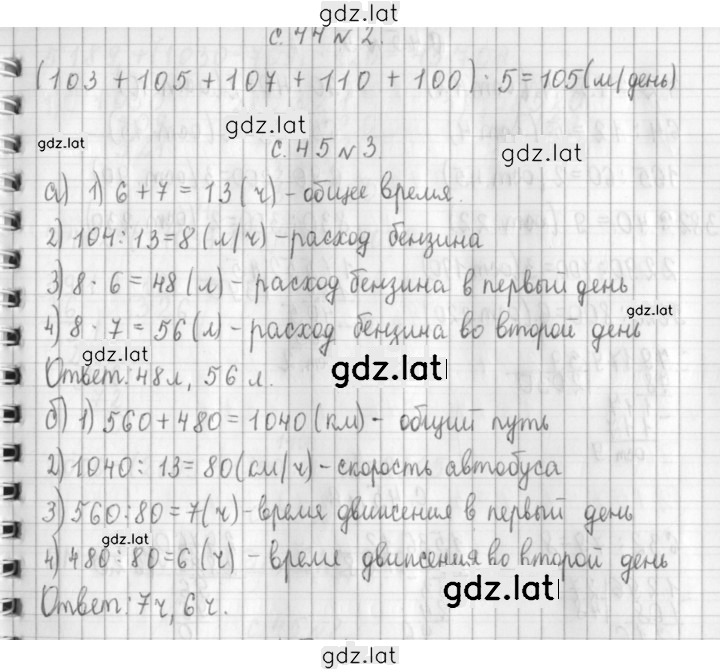 gdz.lat
с. 44 № 2.
(103 + 105 + 107 + 110 + 100) · 5 = 105 (м/день)
gdz.lat
gdz.lat
с. 45 № 3
gdz.lat
а) 1) 6 + 7 = 13 (ч) - общее время.
2) 104 : 13 = 8 (л/ч) - расход бензина
3) 8 · 6 = 48 (л) - расход бензина в первый день
gdz.lat
4) 8 · 7 = 56 (л) - расход бензина во второй день
gdz.lat
gdz.lat
Ответ: 48 л, 56 л.
б) 1) 560 + 480 = 1040 (км) - общий путь
2) 1040 : 13 = 80 (см/ч) - скорость автобуса
3) 560 : 80 = 7 (ч) - время движения в первый день
gdz.lat
4) 480 : 80 = 6 (ч) - время движения во второй день
gdz.lat
Ответ: 7 ч, 6 ч.
gdz.lat